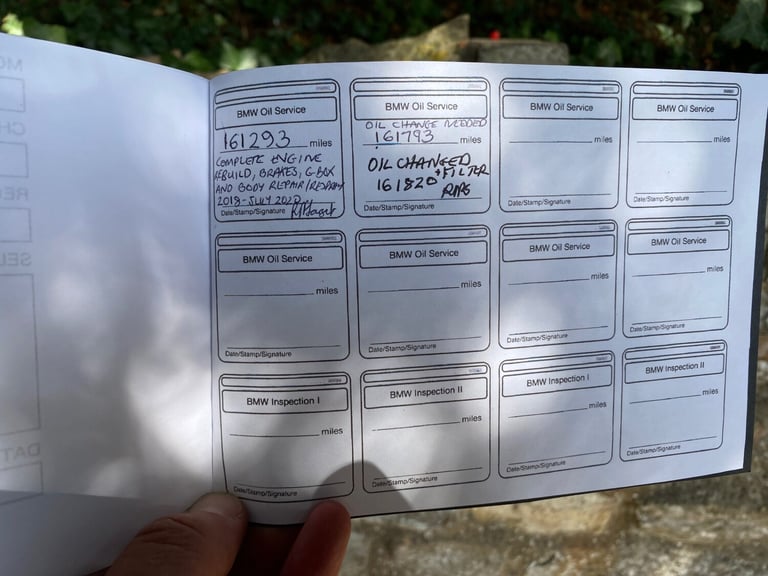 BMW Oil Service
161293 miles
COMPLETE ENGINE
REBUILD, BRAKES, GBOX
AND BODY REPAIR/RESPRAY
2018-JULY 2020
Date/Stamp/Signature
BMW Oil Service
OIL CHANGE NEEDED
161793 miles
OIL CHANGED
+ FILTER
161820
Date/Stamp/Signature
BMW Oil Service
miles
Date/Stamp/Signature
BMW Oil Service
miles
Date/Stamp/Signature
BMW Oil Service
miles
Date/Stamp/Signature
BMW Oil Service
miles
Date/Stamp/Signature
BMW Oil Service
miles
Date/Stamp/Signature
BMW Oil Service
miles
Date/Stamp/Signature
BMW Inspection I
miles
Date/Stamp/Signature
BMW Inspection II
miles
Date/Stamp/Signature
BMW Inspection I
miles
Date/Stamp/Signature
BMW Inspection II
miles
Date/Stamp/Signature